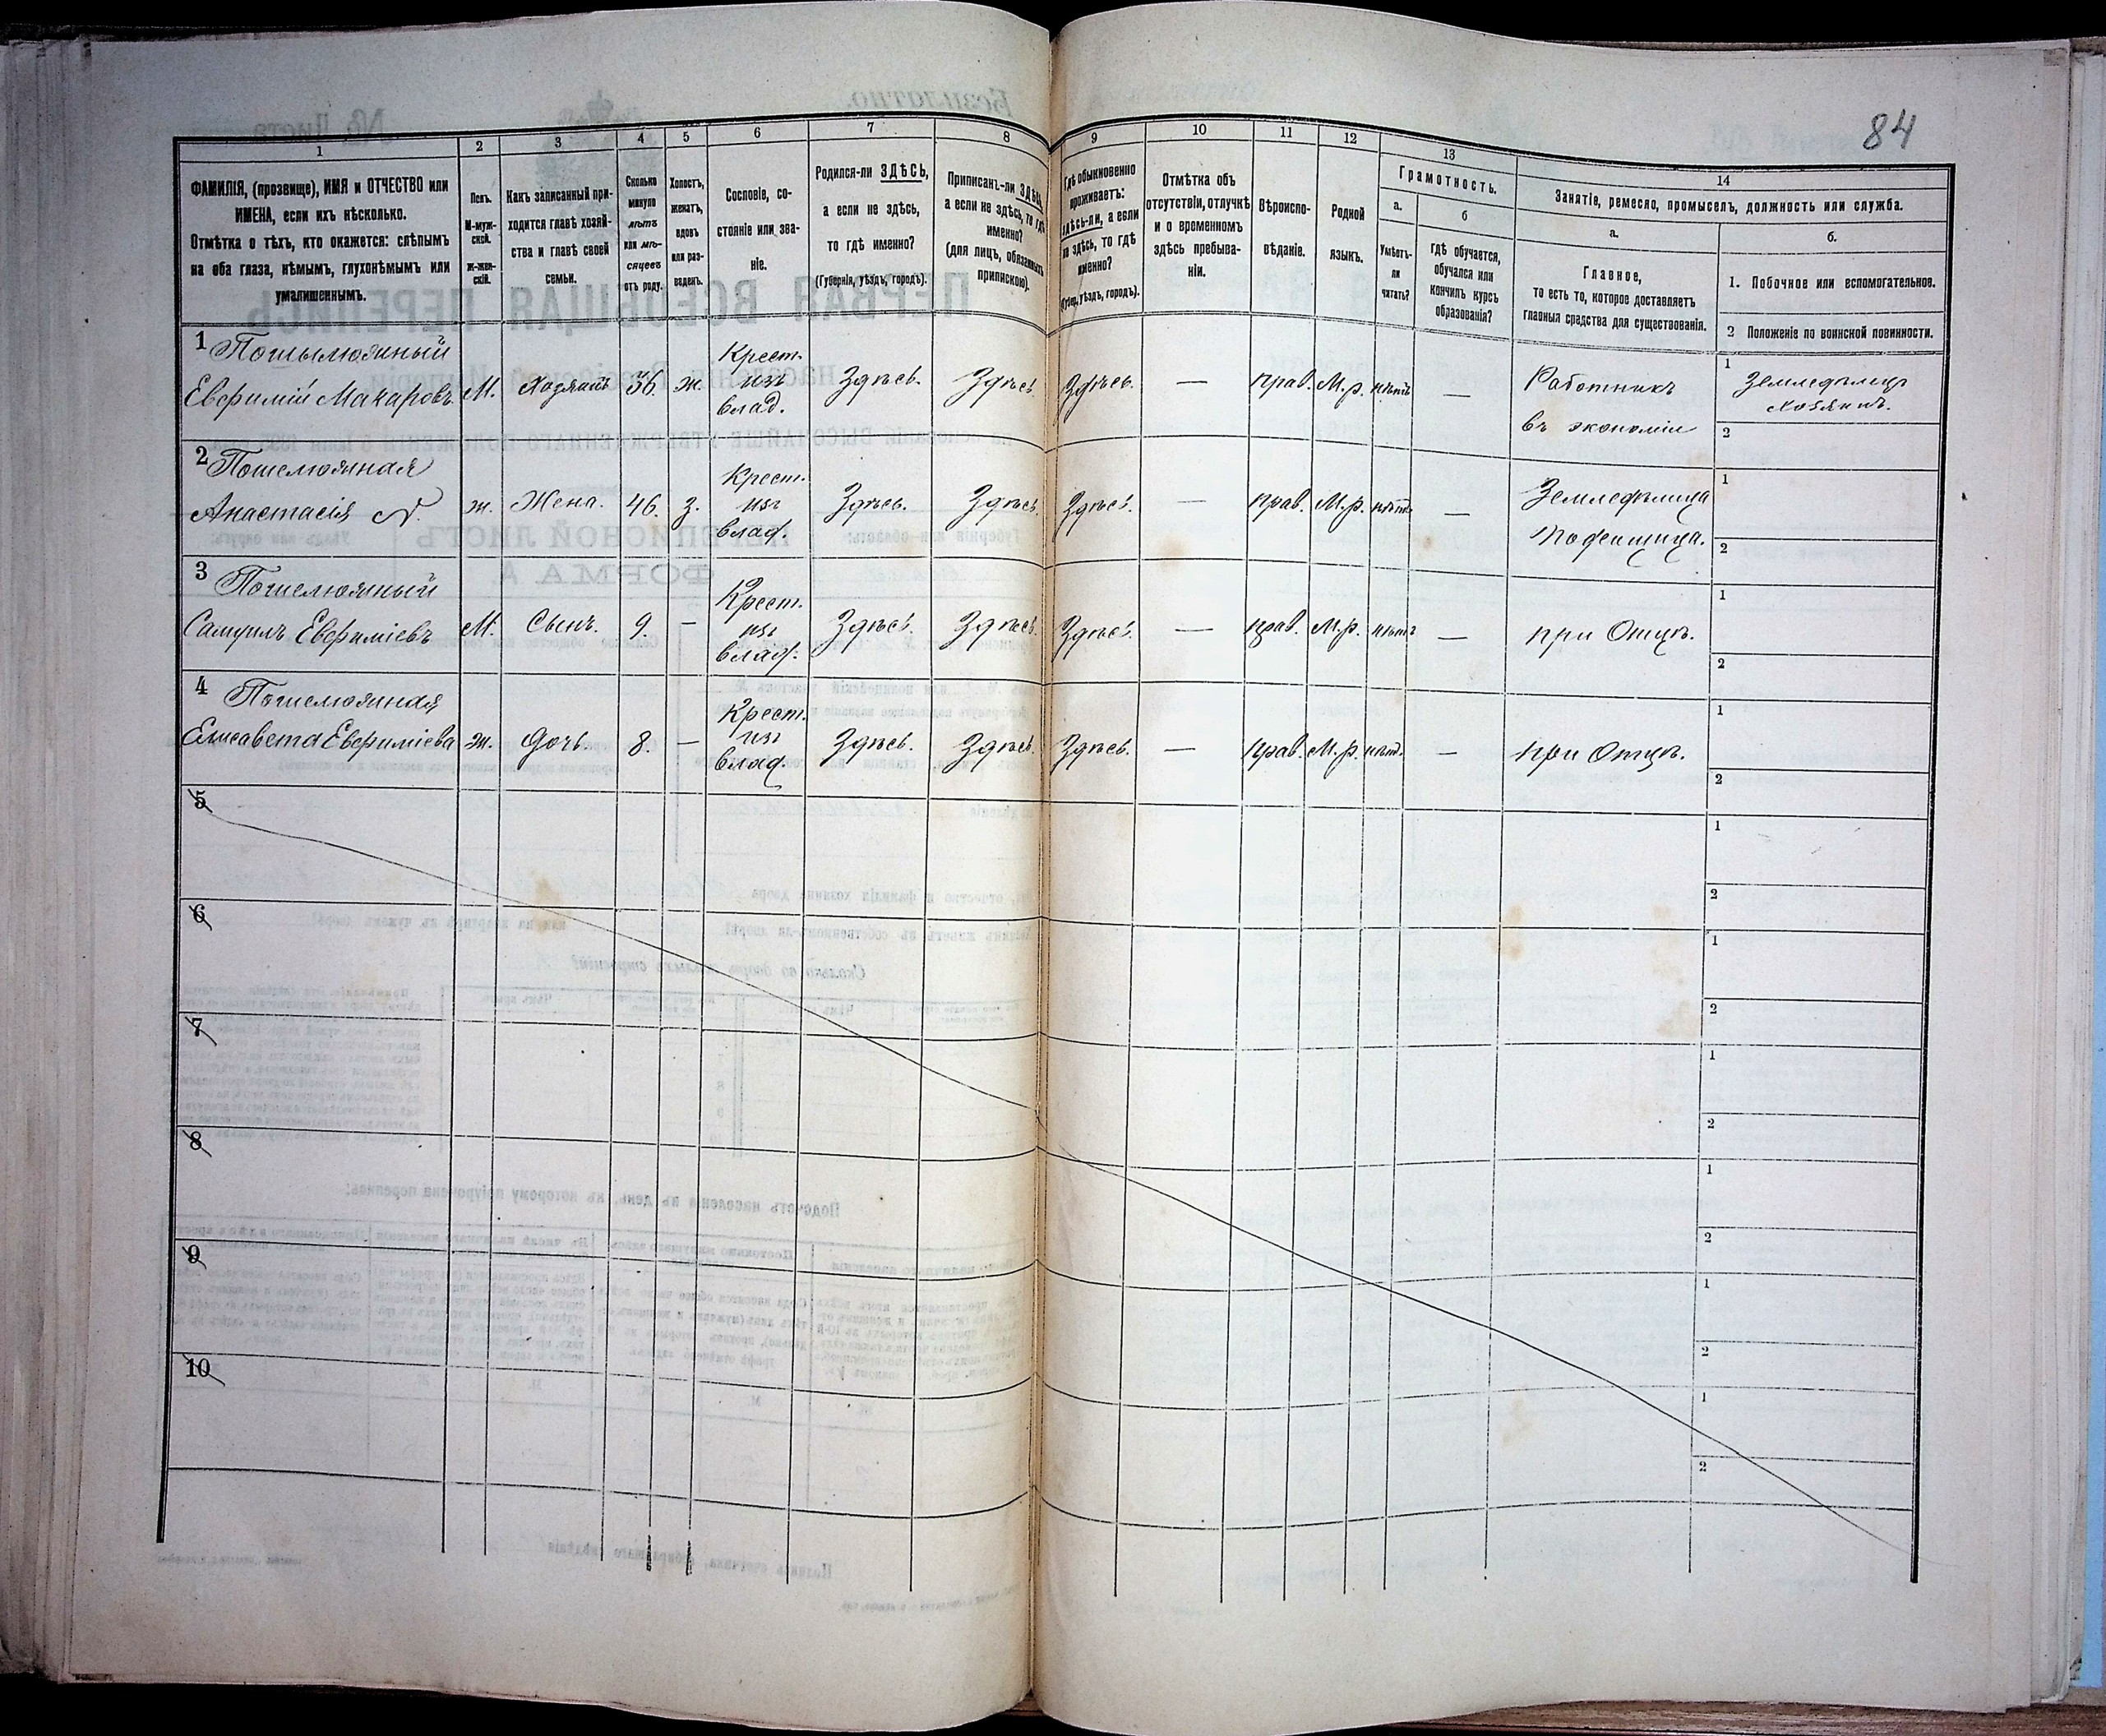 84
1 2 3 4 5 6 7 8 9 10 11 12 13 14
ФАМИЛІЯ, (прозвище), ИМЯ и ОТЧЕСТВО или
ИМЕНА, если ихъ нѣсколько.
Отмѣтка о тѣхъ, кто окажется: слѣпымъ
на оба глаза, нѣмымъ, глухонѣмымъ или
умалишеннымъ.
Полъ.
М-муж-
ской.
Ж-жен-
скій.
Какъ записанный при-
ходится главѣ хозяй-
ства и главѣ своей
семьи.
Сколько
минуло
лѣтъ
или мѣ-
сяцевъ
отъ роду.
Холостъ,
женатъ,
вдовъ
или раз-
веденъ.
Сословіе, со-
стояніе или зва-
ніе.
Родился-ли ЗДѢСЬ,
а если не здѣсь,
то гдѣ именно?
(Губернія, уѣздъ, городъ).
Приписанъ-ли ЗДѢСЬ,
а если не здѣсь, то гдѣ
именно?
(для лицъ, обязанныхъ
припискою).
Гдѣ обыкновенно
проживаетъ:
здѣсь-ли, а если
не здѣсь, то гдѣ
именно?
(Губер., уѣздъ, городъ).
Отмѣтка объ
отсутствіи, отлучкѣ
и о временномъ
здѣсь пребыва-
ніи.
Вѣроиспо-
вѣданіе.
Родной
языкъ.
Грамотность.
а.
Умѣетъ-
ли
читать?
б
Гдѣ обучается,
обучался или
кончилъ курсъ
образованія?
Занятіе, ремесло, промыселъ, должность или служба.
а.
Главное,
то есть то, которое доставляетъ
главныя средства для существованія.
б.
1. Побочное или вспомогательное.
2 Положеніе по воинской повинности.
1
Евфимій Макаровъ М. Хозяинъ 56. ж. Крест. изъ влад. Здѣсь. Здѣсь Здѣсь. — прав. М.р. нѣтъ — Работникъ
въ экономіи
1 Земледѣлецъ
хозяинъ.
2
2
Анастасія N. ж. Жена. 46. з. Крест. изъ влад. Здѣсь. Здѣсь. Здѣсь. — прав. М.р. нѣтъ — Земледѣлица
Поденщица.
1
2
3
Самуилъ Евфиміевъ М. Сынъ. 9. — Крест. изъ влад. Здѣсь. Здѣсь. Здѣсь. — прав. М.р. нѣтъ — при Отцѣ.
1
2
4
Елисавета Евфиміева ж. Дочь. 8. — Крест. изъ влад. Здѣсь. Здѣсь. Здѣсь. — прав. М.р. нѣт. — при Отцѣ.
1
2
5
1
2
6
1
2
7
1
2
8
1
2
9
1
2
10
1
2